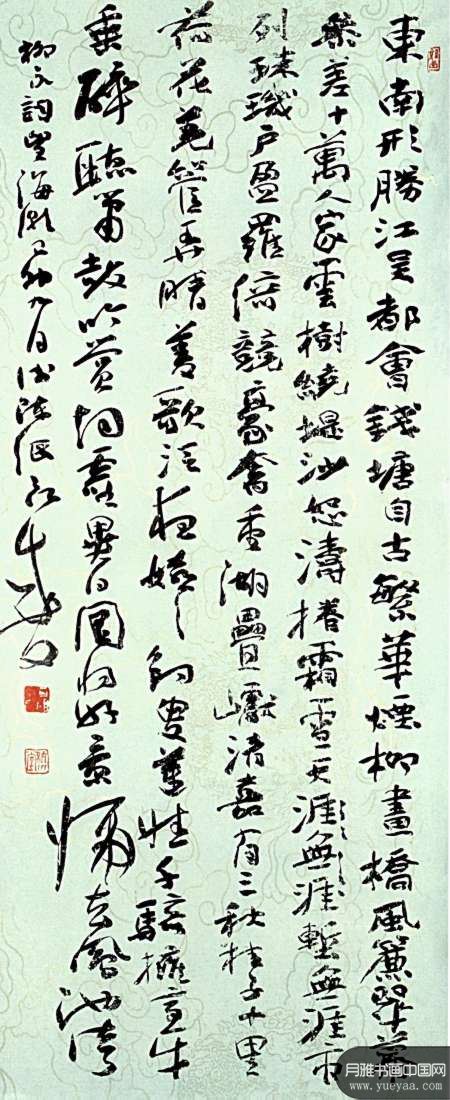 東南形勝江吳都會錢塘自古繁華煙柳畫橋風簾翠幕
參差十萬人家雲樹繞堤沙怒濤捲霜雪天涯無涯塹無涯市
列珠璣戶盈羅綺競豪奢重湖疊巘清嘉有三秋桂子十里
荷花羌管弄晴菱歌泛夜嬉々釣叟蓮娃千騎擁高牙
乘醉聽簫鼓吟賞煙霞異日圖將好景歸去鳳池誇
柳永詞望海潮己卯九月
月雅书画中国网
www.yueyaa.com